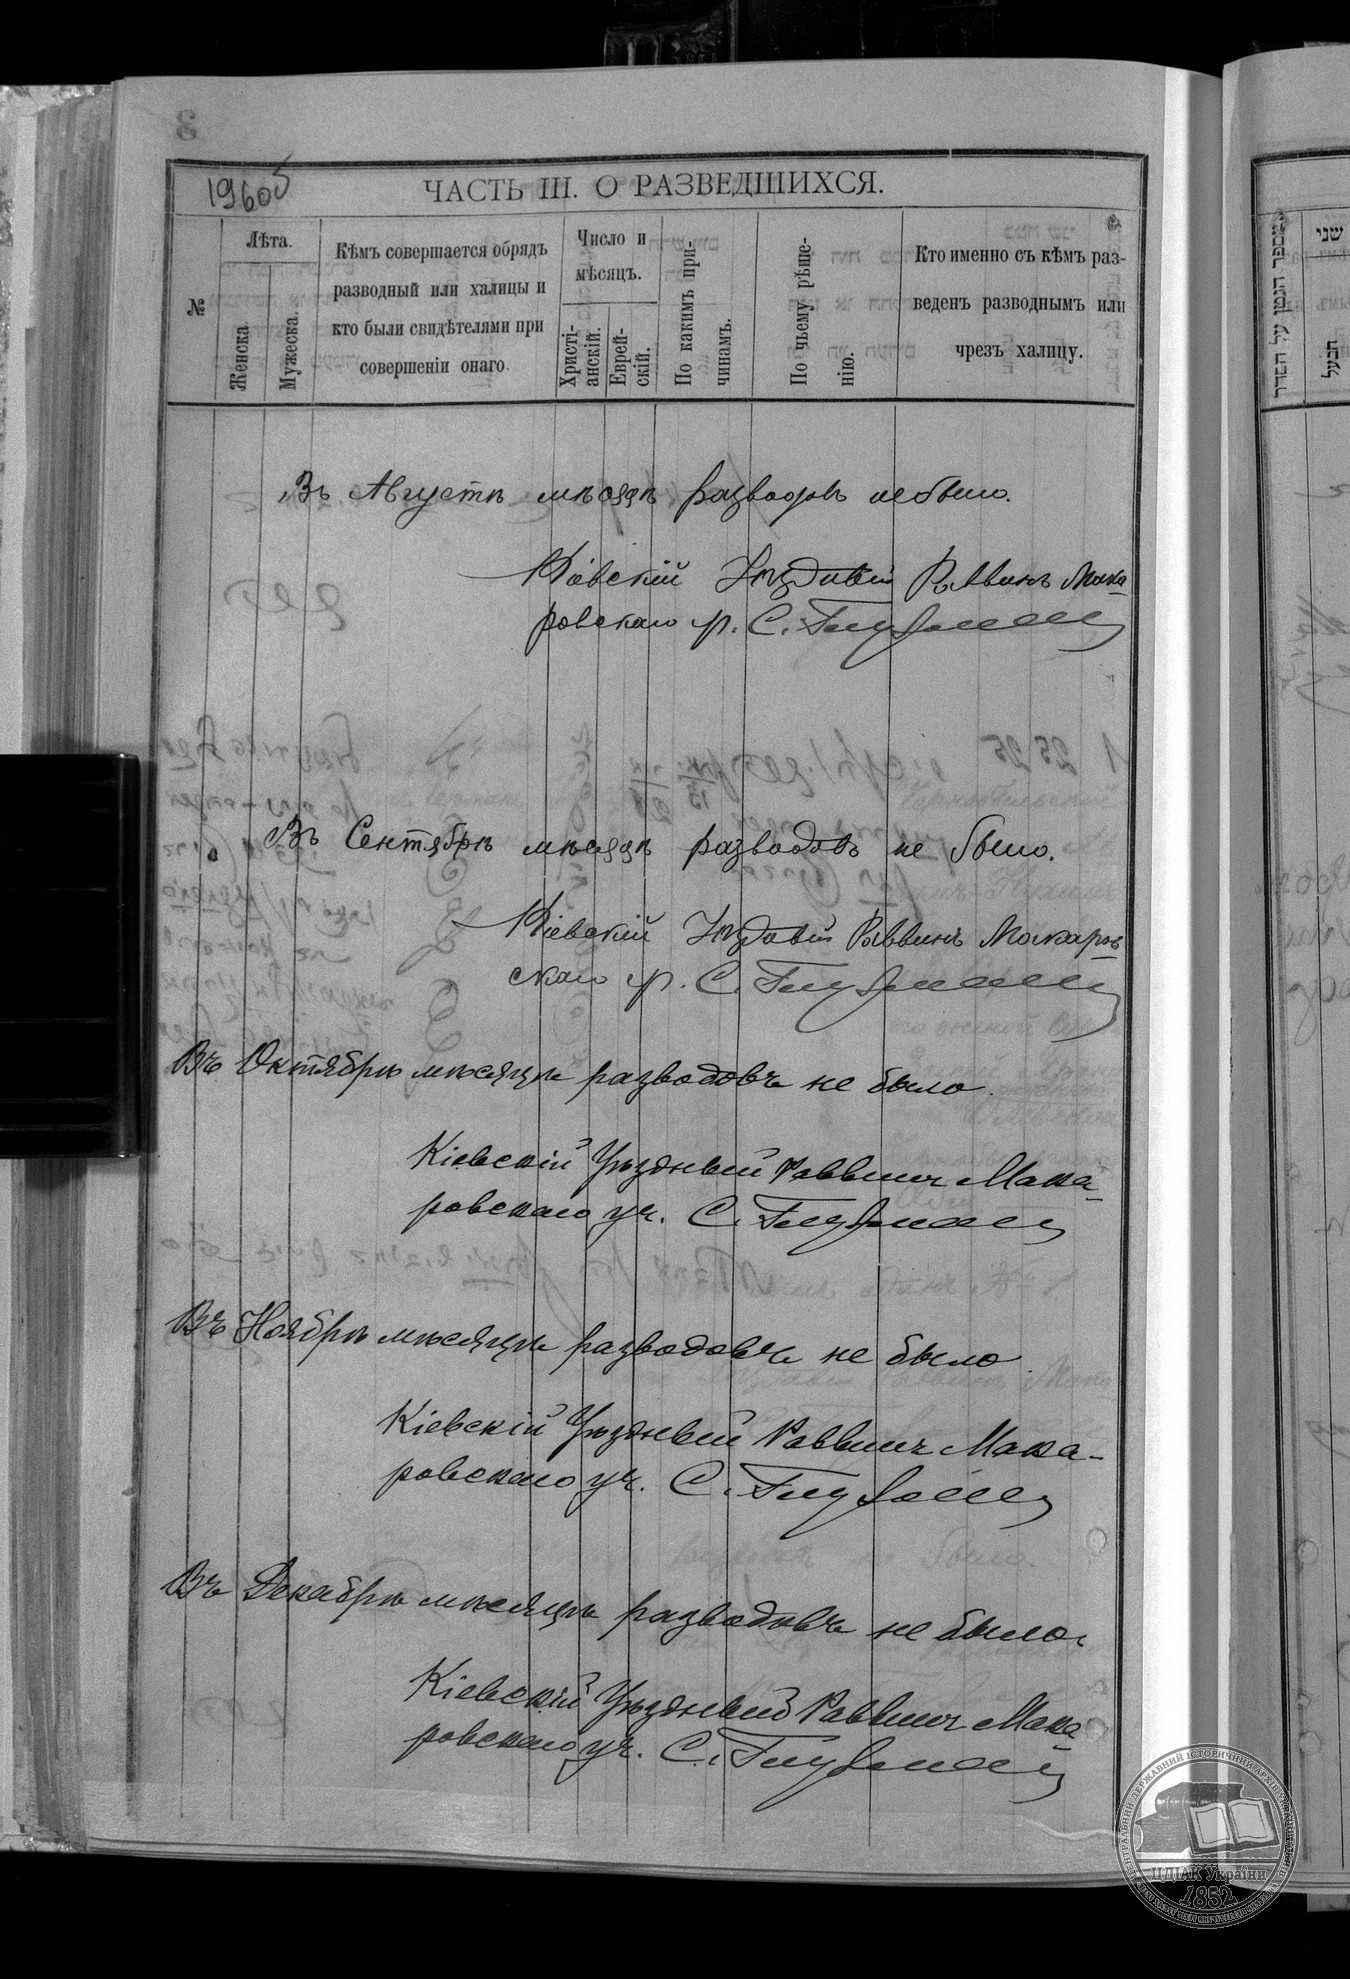 19605
ЧАСТЬ III. О РАЗВЕДШИХСЯ.
№
Лѣта.
Женска
Мужеска.
Кѣмъ совершается обрядъ
разводный или халицы и
кто были свидѣтелями при
совершеніи онаго
Число и
мѣсяцъ.
Христі-
анскій.
Еврей-
скій.
По какимъ при-
чинамъ.
По чьему рѣше-
нію.
Кто именно съ кѣмъ раз-
веденъ разводнымъ или
чрезъ халицу.
Въ Августѣ мѣсяцѣ разводовъ не было.
Кіевскій Уѣздный Раввинъ Мака-
ровскаго уч. С.
Въ Сентябрѣ мѣсяцѣ разводовъ не было.
Кіевскій Уѣздный Раввинъ Макаров-
скаго уч. С.
Въ Октябрѣ мѣсяцѣ разводовъ не было.
Кіевскій Уѣздный Раввинъ Мака-
ровскаго уч. С.
Въ Ноябрѣ мѣсяцѣ разводовъ не было.
Кіевскій Уѣздный Раввинъ Мака-
ровскаго уч. С.
Въ Декабрѣ мѣсяцѣ разводовъ не было.
Кіевскій Уѣздный Раввинъ Мака
ровскаго уч. С.
מספר הנשן על הסדר
שני
הבעל
ЦДІАК України
1852